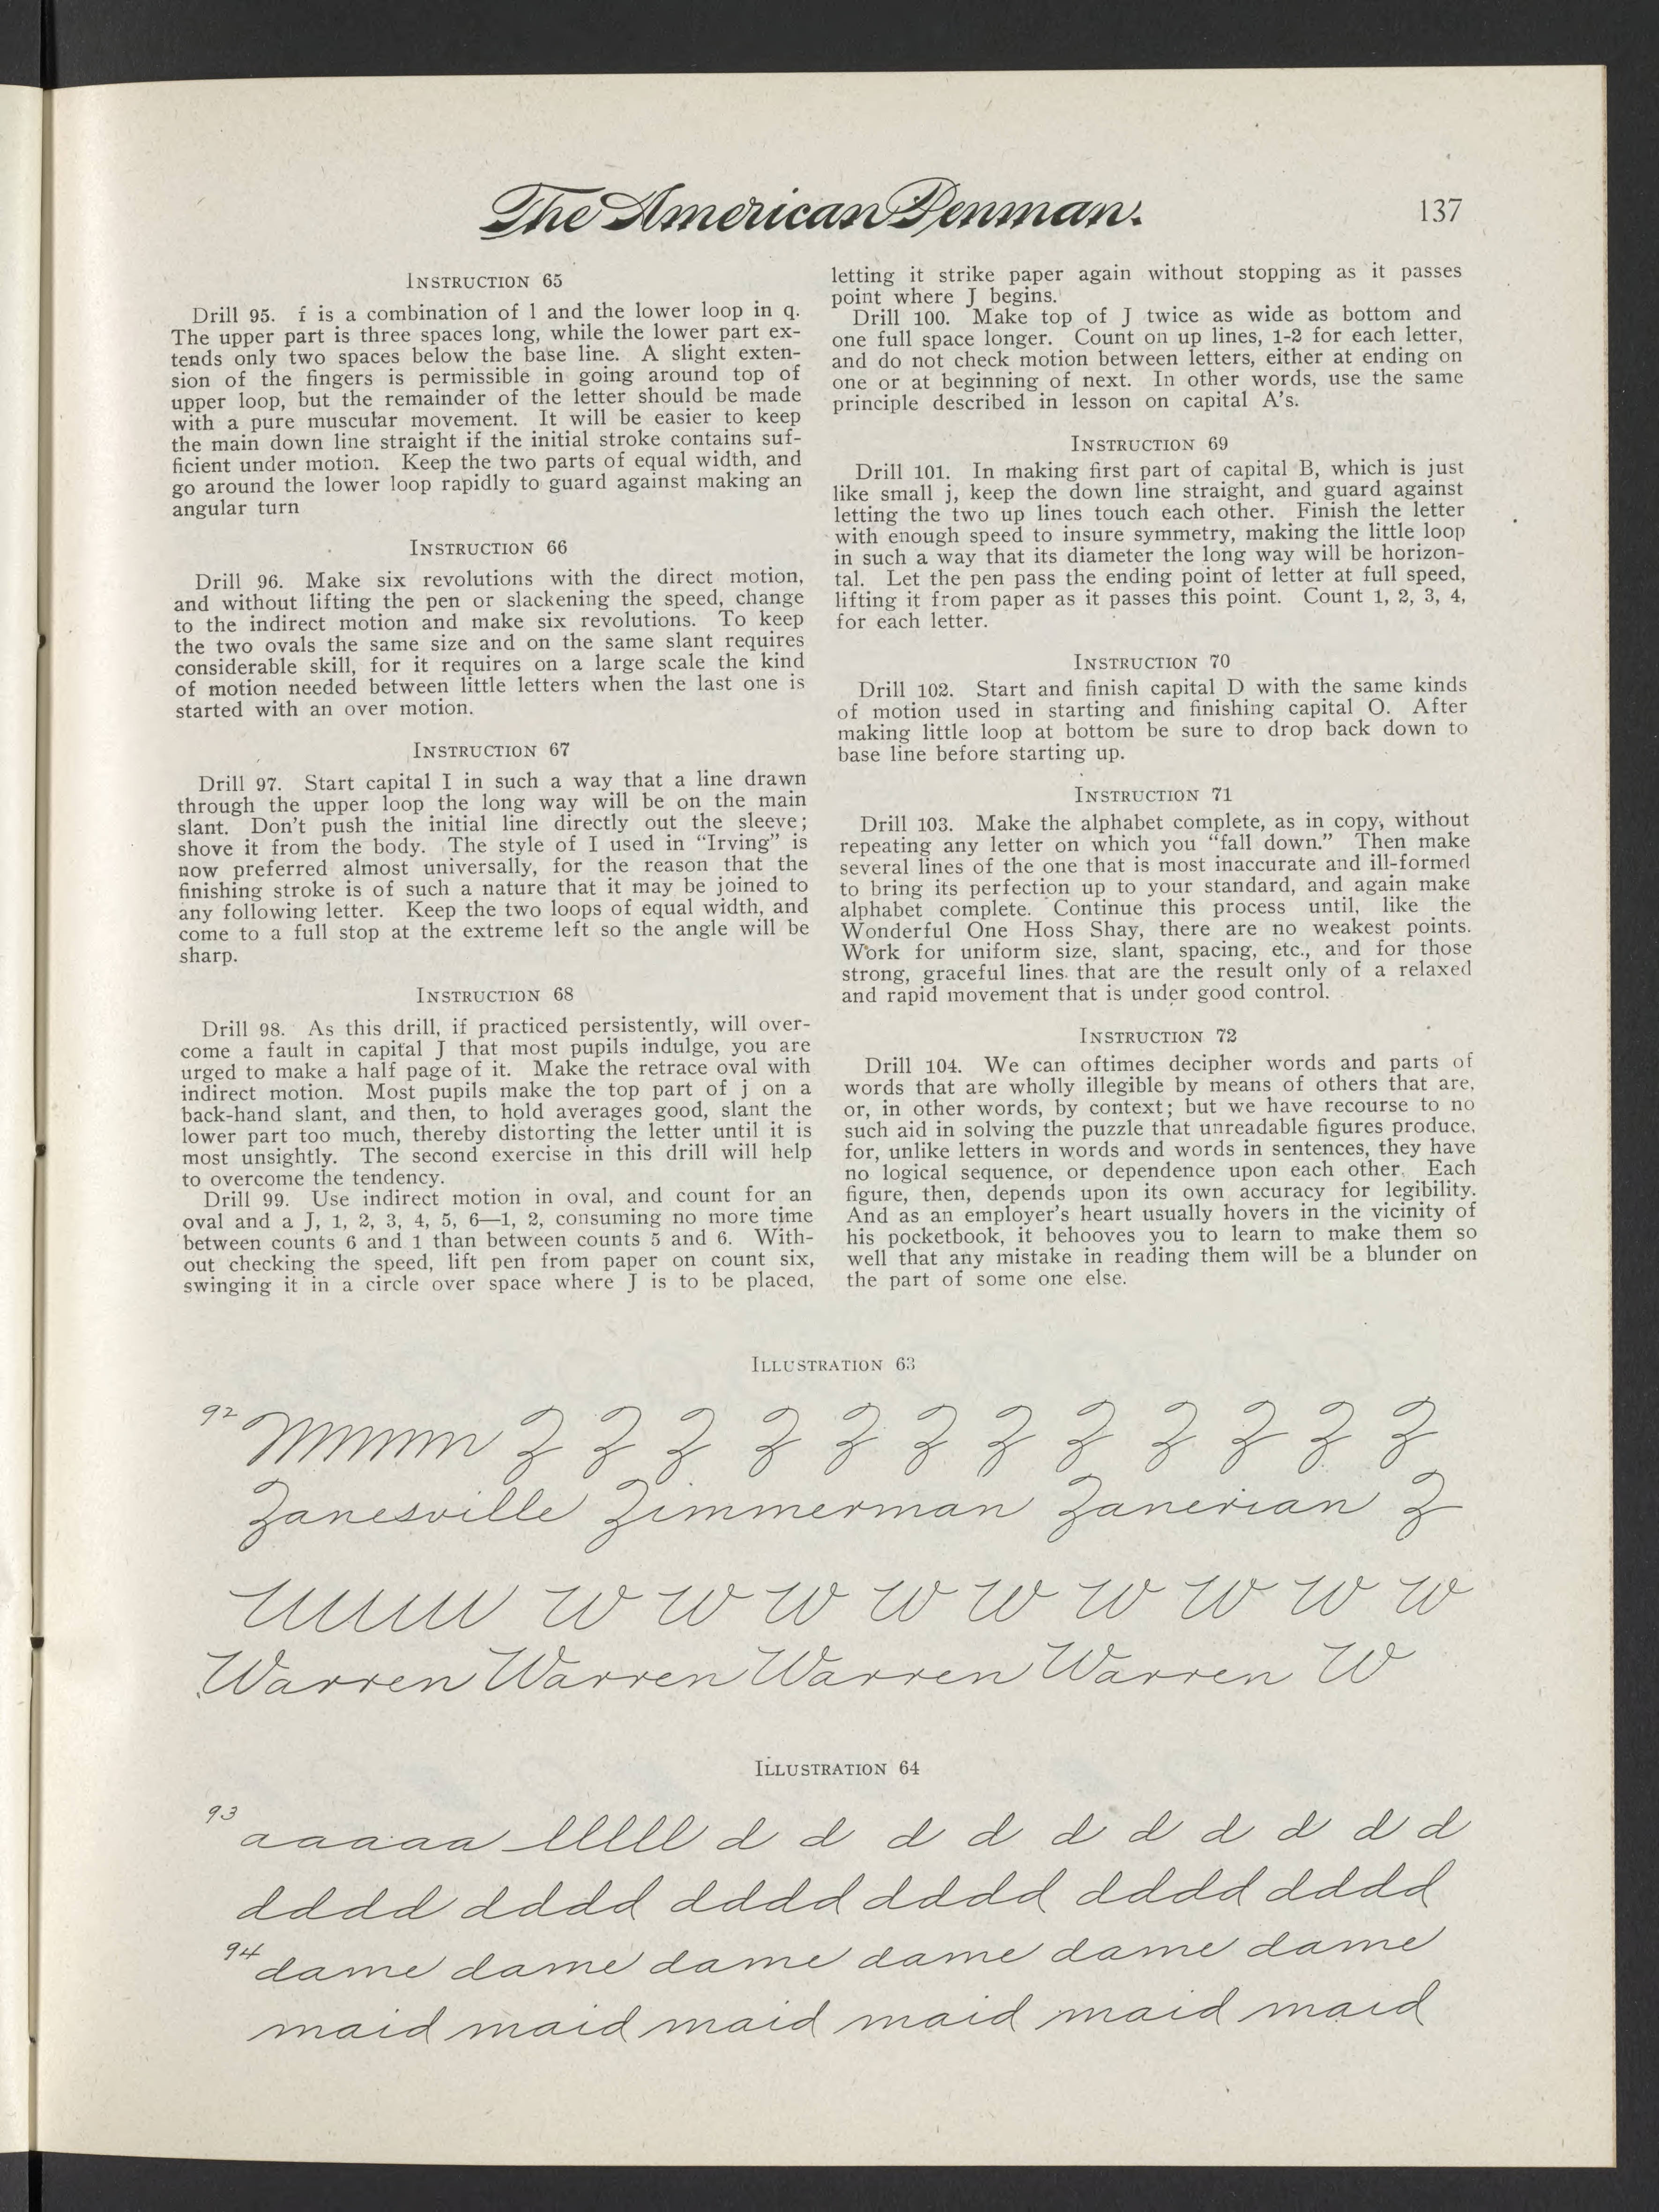 The American Penman.
137
INSTRUCTION 65
Drill 95. f is a combination of l and the lower loop in q.
The upper part is three spaces long, while the lower part ex-
tends only two spaces below the base line. A slight exten-
sion of the fingers is permissible in going around top of
upper loop, but the remainder of the letter should be made
with a pure muscular movement. It will be easier to keep
the main down line straight if the initial stroke contains suf-
ficient under motion. Keep the two parts of equal width, and
go around the lower loop rapidly to guard against making an
angular turn
INSTRUCTION 66
Drill 96. Make six revolutions with the direct motion,
and without lifting the pen or slackening the speed, change
to the indirect motion and make six revolutions. To keep
the two ovals the same size and on the same slant requires
considerable skill, for it requires on a large scale the kind
of motion needed between little letters when the last one is
started with an over motion.
INSTRUCTION 67
Drill 97. Start capital I in such a way that a line drawn
through the upper loop the long way will be on the main
slant. Don't push the initial line directly out the sleeve;
shove it from the body. The style of I used in "Irving" is
now preferred almost universally, for the reason that the
finishing stroke is of such a nature that it may be joined to
any following letter. Keep the two loops of equal width, and
come to a full stop at the extreme left so the angle will be
sharp.
INSTRUCTION 68
Drill 98. As this drill, if practiced persistently, will over-
come a fault in capital J that most pupils indulge, you are
urged to make a half page of it. Make the retrace oval with
indirect motion. Most pupils make the top part of j on a
back-hand slant, and then, to hold averages good, slant the
lower part too much, thereby distorting the letter until it is
most unsightly. The second exercise in this drill will help
to overcome the tendency.
Drill 99. Use indirect motion in oval, and count for an
oval and a J, 1, 2, 3, 4, 5, 6—1, 2, consuming no more time
between counts 6 and 1 than between counts 5 and 6. With-
out checking the speed, lift pen from paper on count six,
swinging it in a circle over space where J is to be placed,
letting it strike paper again without stopping as it passes
point where J begins.
Drill 100. Make top of J twice as wide as bottom and
one full space longer. Count on up lines, 1-2 for each letter,
and do not check motion between letters, either at ending on
one or at beginning of next. In other words, use the same
principle described in lesson on capital A's.
INSTRUCTION 69
Drill 101. In making first part of capital B, which is just
like small j, keep the down line straight, and guard against
letting the two up lines touch each other. Finish the letter
with enough speed to insure symmetry, making the little loop
in such a way that its diameter the long way will be horizon-
tal. Let the pen pass the ending point of letter at full speed,
lifting it from paper as it passes this point. Count 1, 2, 3, 4,
for each letter.
INSTRUCTION 70
Drill 102. Start and finish capital D with the same kinds
of motion used in starting and finishing capital O. After
making little loop at bottom be sure to drop back down to
base line before starting up.
INSTRUCTION 71
Drill 103. Make the alphabet complete, as in copy, without
repeating any letter on which you "fall down." Then make
several lines of the one that is most inaccurate and ill-formed
to bring its perfection up to your standard, and again make
alphabet complete. Continue this process until, like the
Wonderful One Hoss Shay, there are no weakest points.
Work for uniform size, slant, spacing, etc., and for those
strong, graceful lines that are the result only of a relaxed
and rapid movement that is under good control.
INSTRUCTION 72
Drill 104. We can oftimes decipher words and parts of
words that are wholly illegible by means of others that are,
or, in other words, by context; but we have recourse to no
such aid in solving the puzzle that unreadable figures produce,
for, unlike letters in words and words in sentences, they have
no logical sequence, or dependence upon each other. Each
figure, then, depends upon its own accuracy for legibility.
And as an employer's heart usually hovers in the vicinity of
his pocketbook, it behooves you to learn to make them so
well that any mistake in reading them will be a blunder on
the part of some one else.
ILLUSTRATION 63
92 Z Z Z Z Z Z Z Z Z Z Z Z
Zanesville Zimmerman Zanerian Z
W W W W W W W W W
Warren Warren Warren Warren W
ILLUSTRATION 64
93 aaaaaa lllll d d d d d d d d d d
dddd dddd dddd dddd dddd dddd
94 dame dame dame dame dame dame
maid maid maid maid maid maid